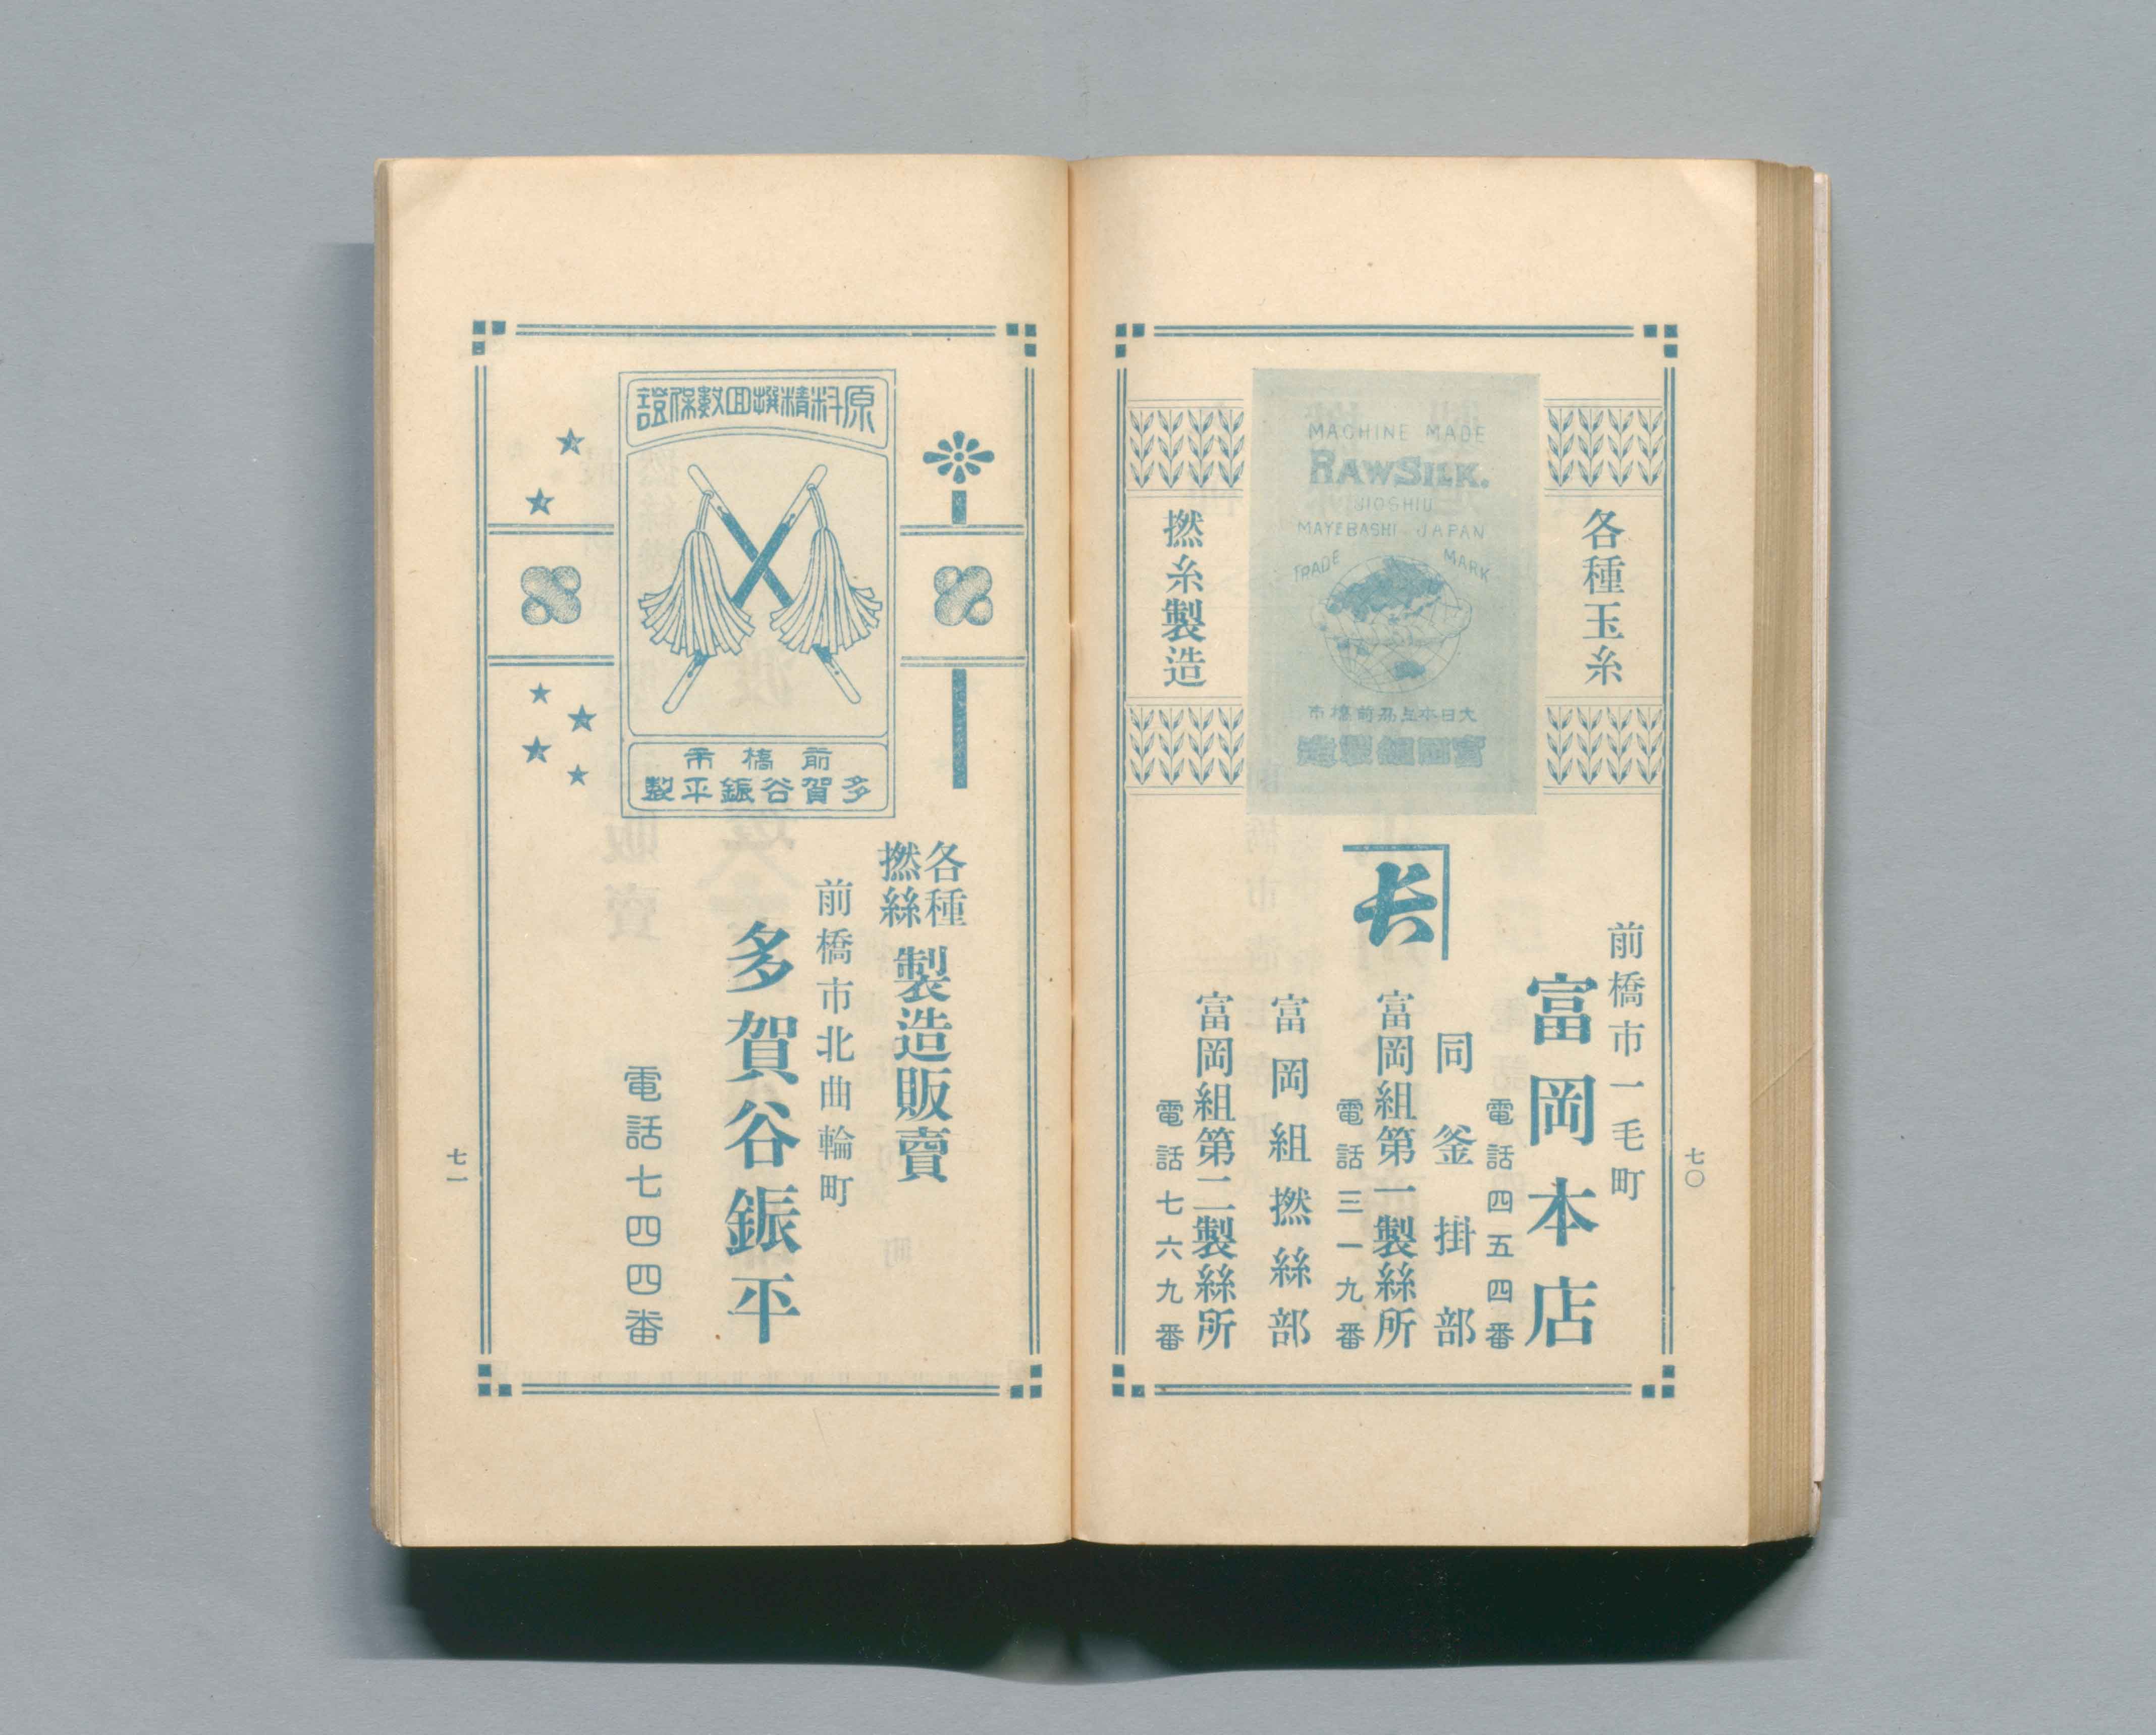 各種玉糸
MACHINE MADE
RAW SILK.
JIOSHIU
MAYEBASHI JAPAN
TRADE MARK
大日本上州前橋市
富岡組製造
撚糸製造
前橋市一毛町
富岡本店
電話四五四番
同釜掛部
富岡組第一製絲所
電話三一九番
富岡組撚絲部
富岡組第二製絲所
電話七六九番
七〇
原料精撰回数保證
前橋市
多賀谷鋠平製
各種
撚絲
製造販賣
前橋市北曲輪町
多賀谷鋠平
電話七四四番
七一